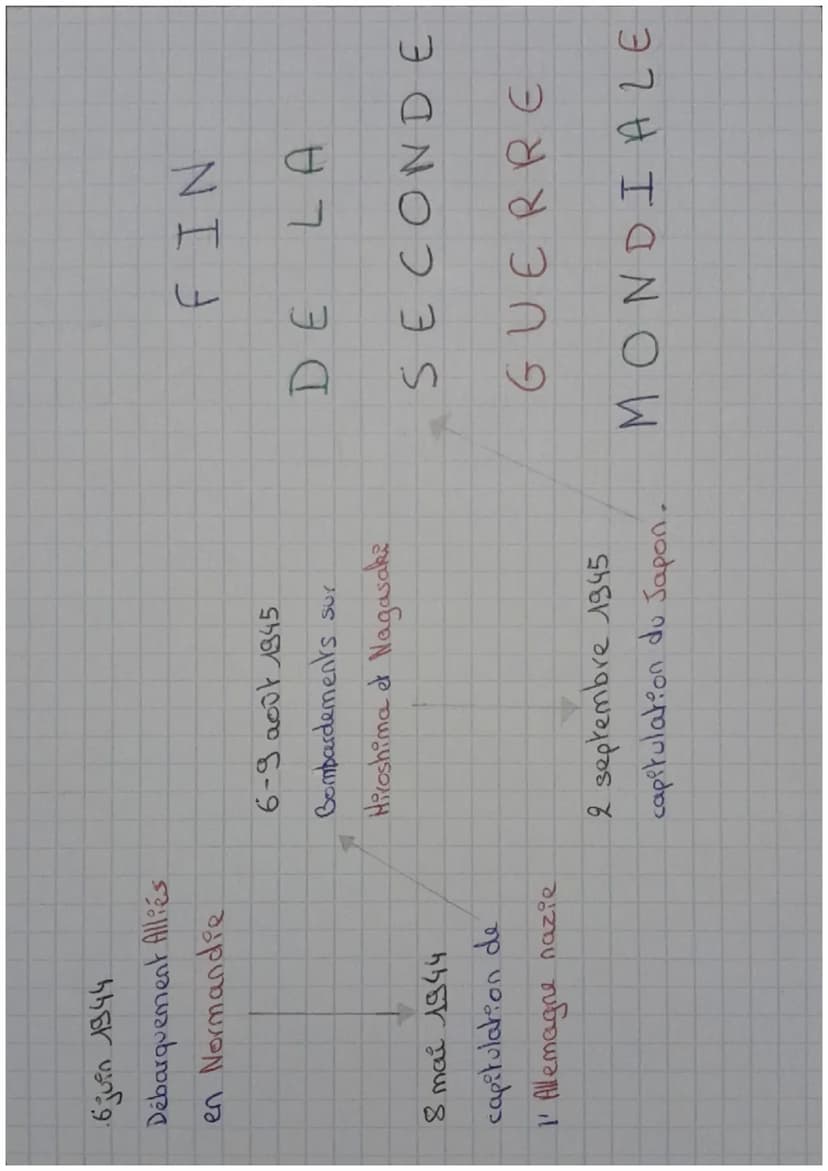 6 juin 1944
Débarquement Alliés
en Normandie
8 mai 1944
capitulation de
l'Allemagne nazie
6-9 août 1945
Bombardements sur
Hiroshima et Nagasaki
2 septembre 1945
capitulation du Japon.
FIN
DE LA
SECONDE
GUERRE
MONDIALE